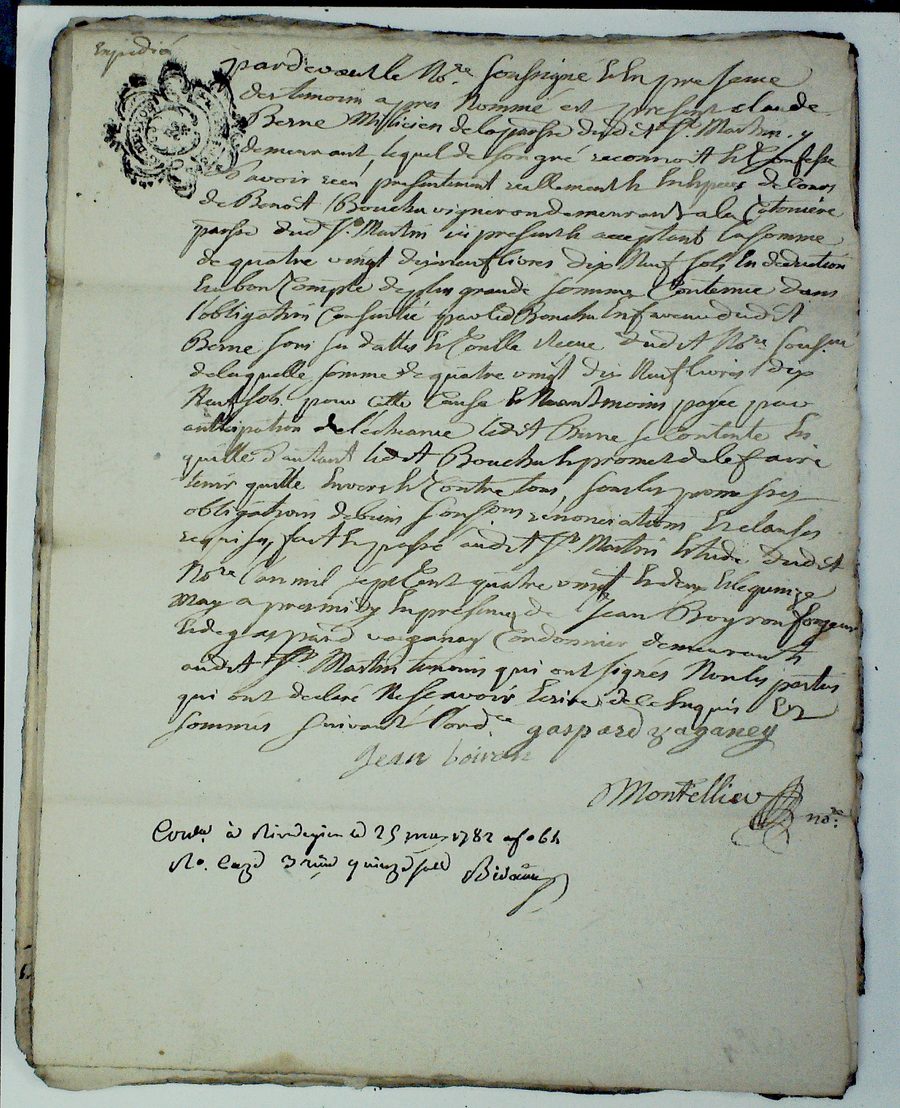 Expédié
pardevant le No.re soussigné & En presence
des temoins apres Nommé est present claude
Berne Milicien de la parsse dudit St. Martin y
demeurant, lequel de son gré reconnoit & Confesse
avoir reçu presentement reellement & En Especes de Cours
de Benoît Bouchu vigneron demeurant a la
parsse dud St. Martin ici present & acceptant la somme
de quatre vingt dix neuf livres dix Neuf sols En deduction
& a bon Compte de plus grande somme Contenue dans
l'obligation Consentie par led Bouchu En faveur dudit
Berne sous sa datte & Contrôle Reçue dudit No.re soussné
de laquelle somme de quatre vingt dix Neuf livres dix
Neuf sols pour cette Cause & Neantmoins payée par
anticipation de l'écheance ledit Berne se contente En
quitte d'autant ledit Bouchu & promet de le faire
tenir quitte Envers & Contre tous, sous les promesses
obligations de biens soumissions renonciations & clauses
requises, fait & passé audit St. Martin Etude dudit
No.re l'an mil sept cent quatre vingt & deux & le quinze
May apres midy En presence de Jean Boyron
& de gaspard vaganay Cordonnier demeurants
audit St. Martin temoins qui ont signés Non les parties
qui ont declaré Ne sçavoir Ecrire de ce Enquis &
sommés suivant l'ord.ce gaspard vaganey
Jean boiron
Montellier no.re
Con.lé à Rivedegier le 25 may 1782 f.o 61
R. quinze sols